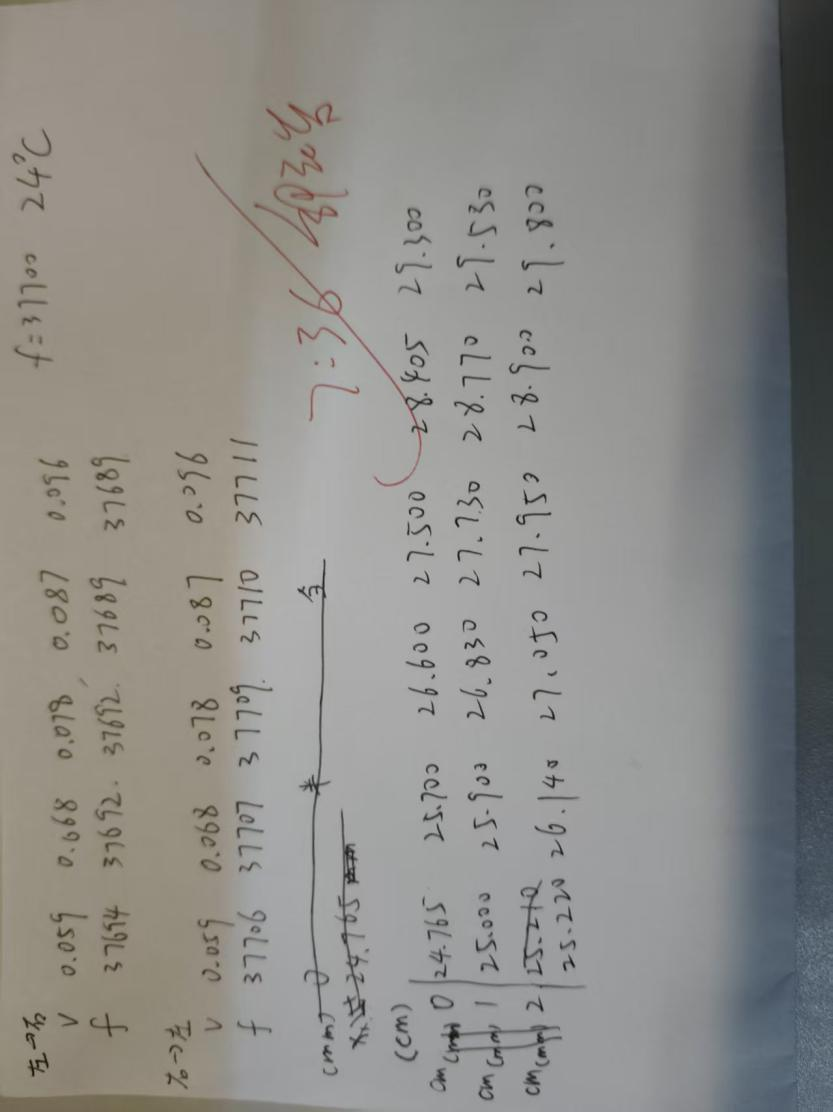 f=37700 24℃
V 0.059 0.668 0.078 0.087 0.096
f 37694 37692. 37692. 37689 37689
V 0.059 0.068 0.078 0.087 0.096
f 37706 37707 37709. 37710 37711
(mm)
7:36
(cm)
cm 0 24.765 25.700 26.600 27.500 28.405 29.300
cm 1 25.000 25.900 26.830 27.730 28.770 29.530
cm 2 25.210
25.220 26.140 27.050 27.950 28.900 29.800